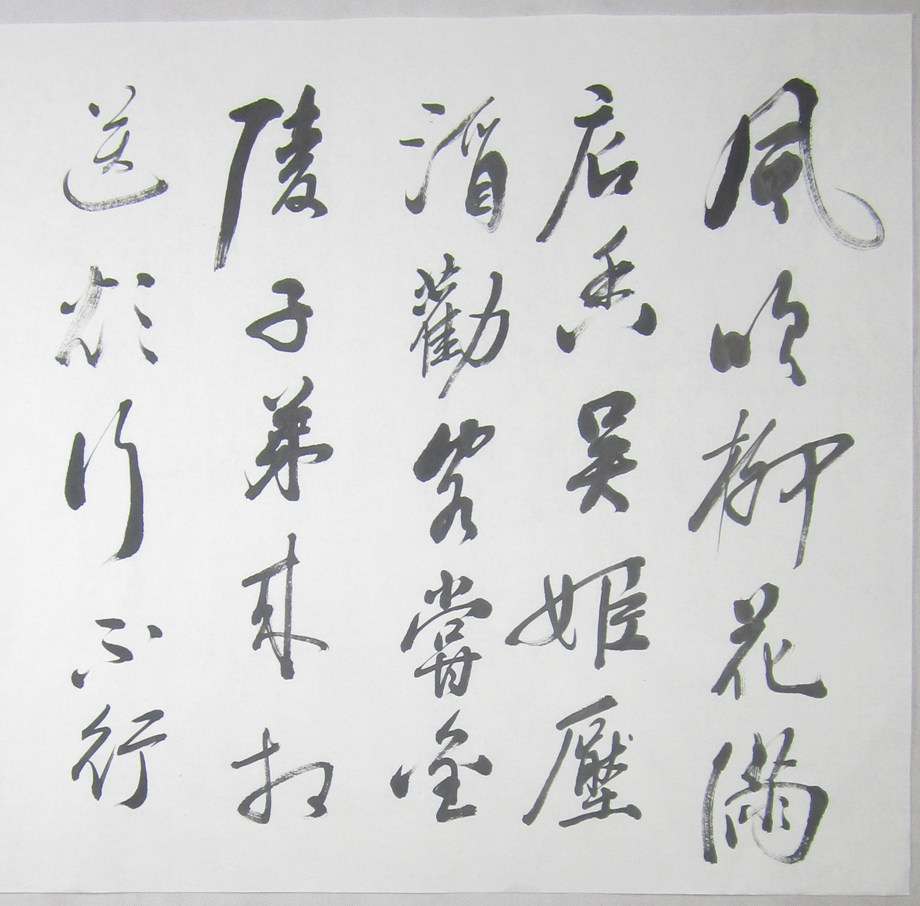 風吹柳花滿
店香吳姬壓
酒勸客嘗金
陵子弟來相
送欲行不行